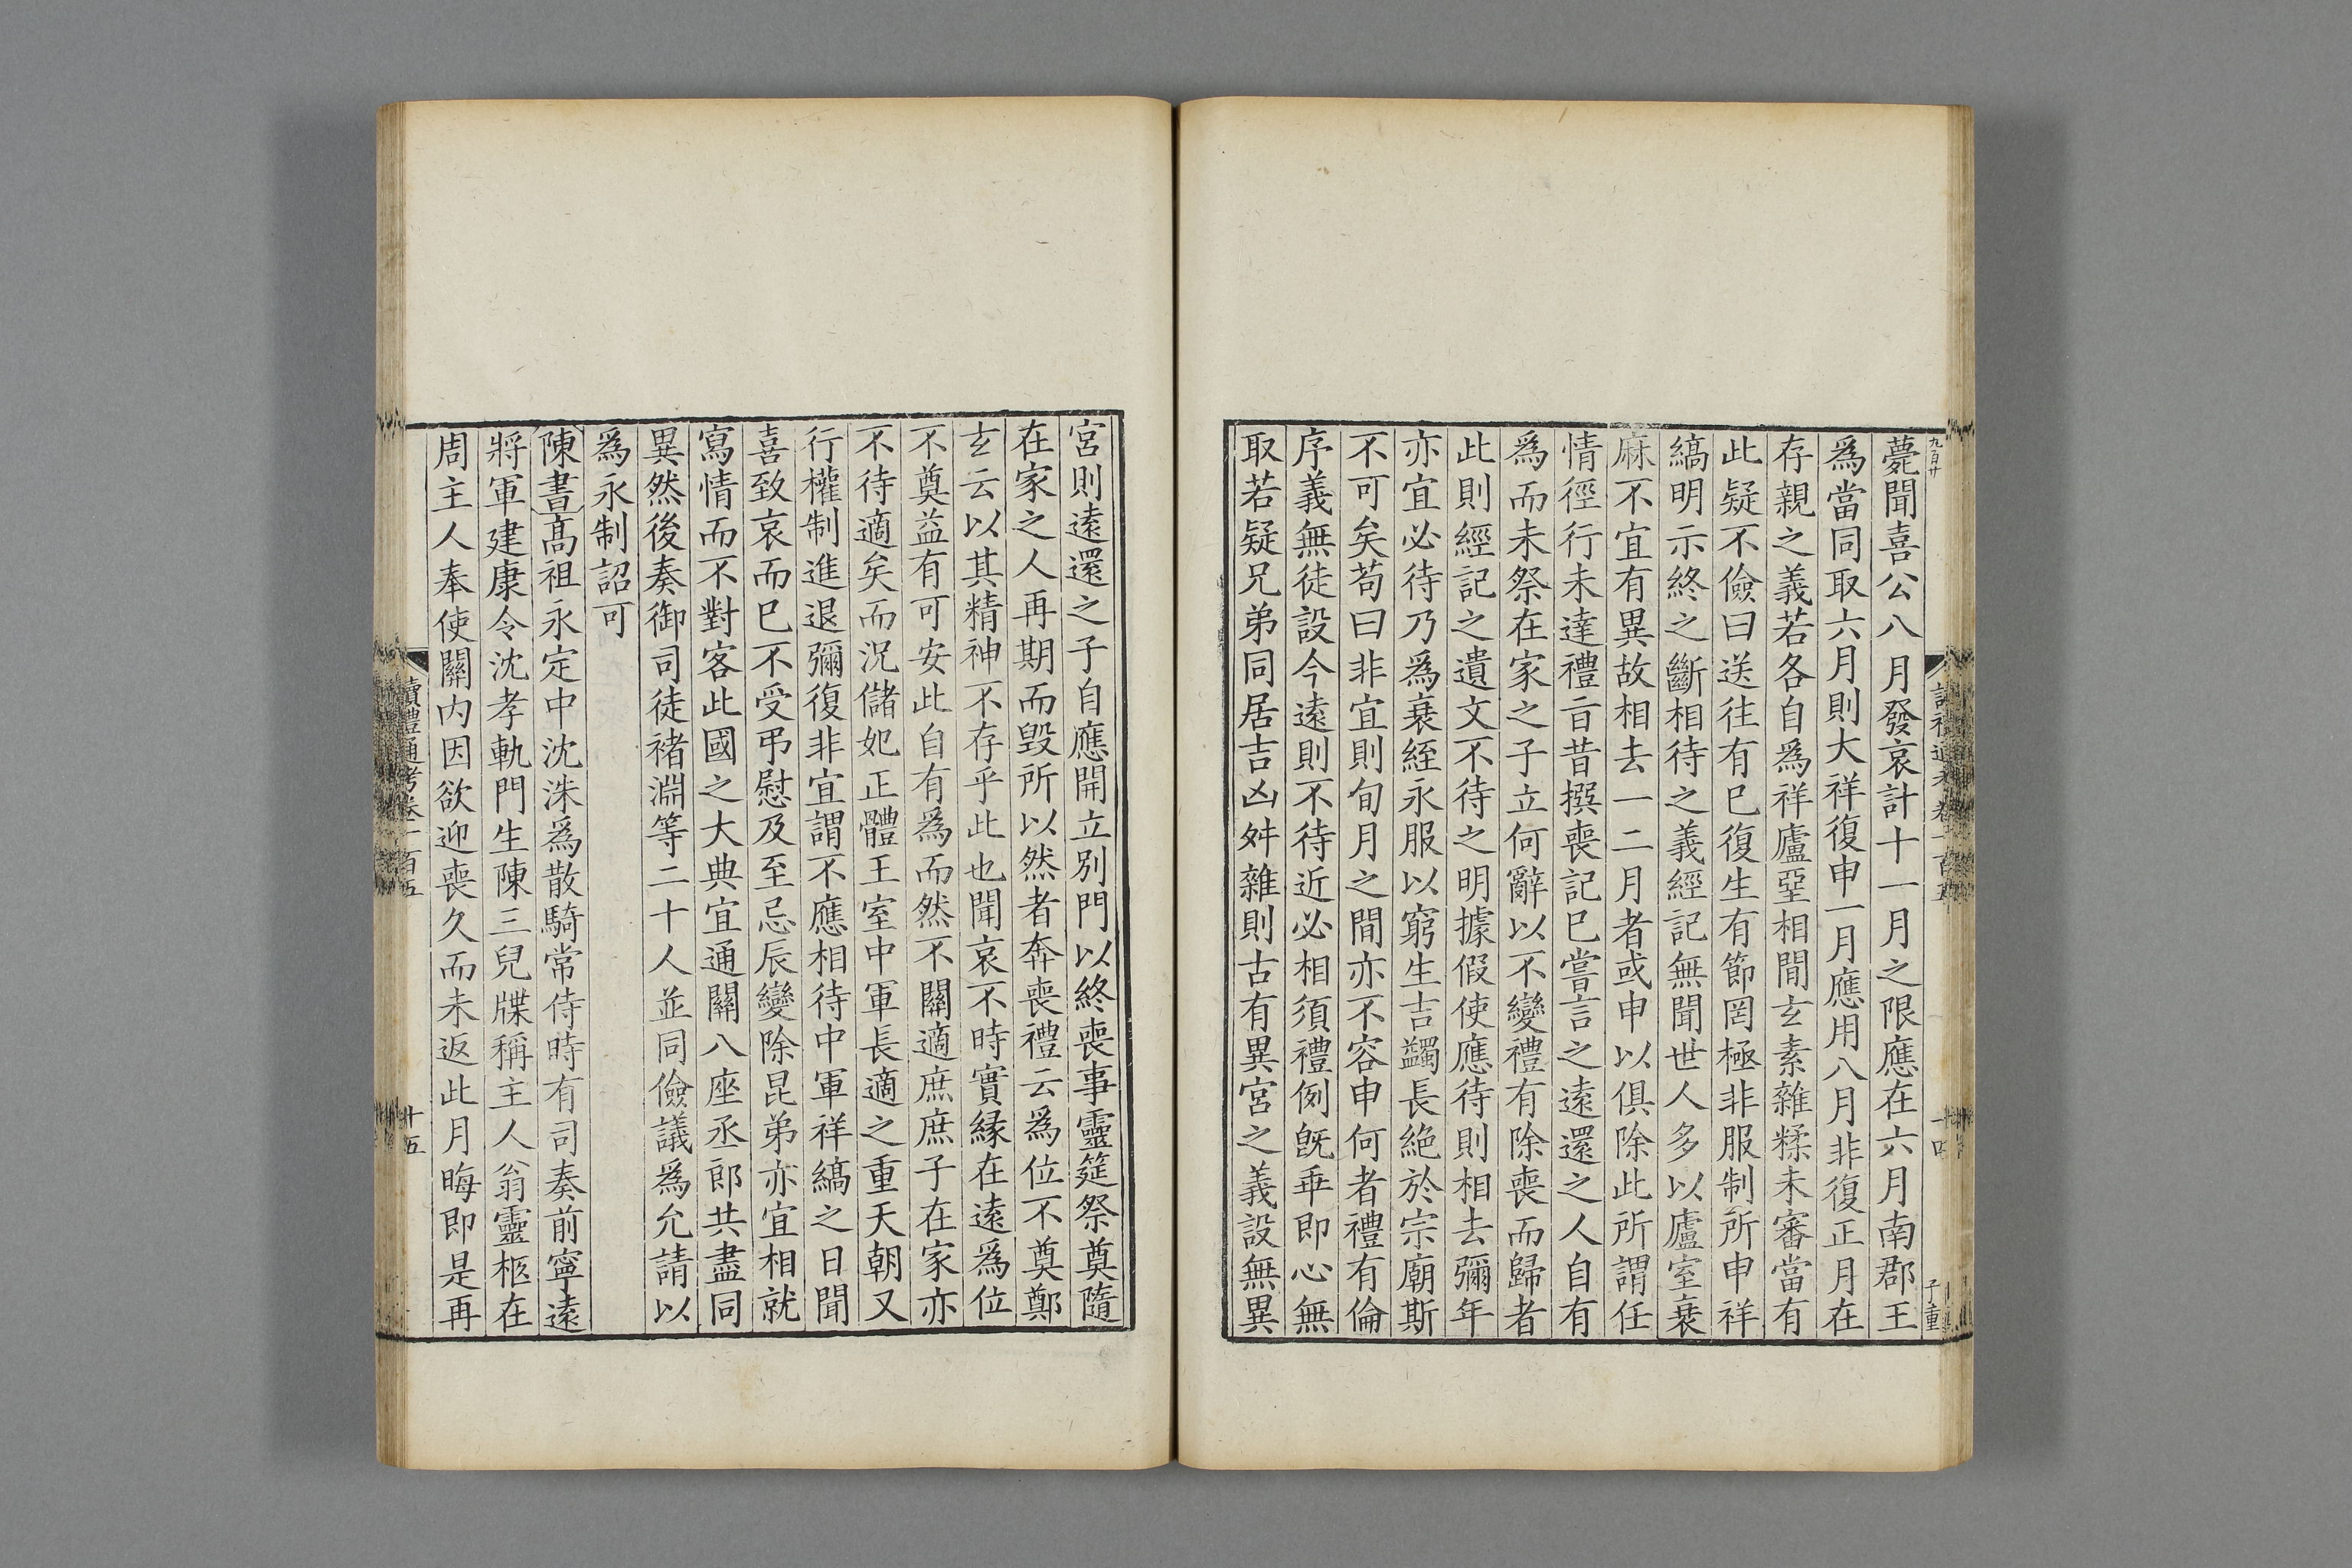 薨聞喜公八月發哀計十一月之限應在六月南郡王
爲當同取六月則大祥復申一月應用八月非復正月在
存親之義若各自爲祥廬堊相閒玄素雜糅未審當有
此疑不儉曰送往有巳復生有節罔極非服制所申祥
縞明示終之斷相待之義經記無聞世人多以廬室衰
麻不宜有異故相去一二月者或申以俱除此所謂任
情徑行未達禮㫖昔撰喪記巳嘗言之遠還之人自有
爲而未祭在家之子立何辭以不變禮有除喪而歸者
此則經記之遺文不待之明據假使應待則相去彌年
亦宜必待乃爲衰絰永服以窮生吉蠲長絕於宗廟斯
不可矣苟曰非宜則旬月之間亦不容申何者禮有倫
序義無徒設今遠則不待近必相須禮例旣乖即心無
取若疑兄弟同居吉凶舛雜則古有異宮之義設無異
宮則遠還之子自應開立別門以終喪事靈筵祭奠隨
在家之人再期而毀所以然者奔喪禮云爲位不奠鄭
玄云以其精神不存乎此也聞哀不時實緣在遠爲位
不奠益有可安此自有爲而然不關適庶庶子在家亦
不待適矣而況儲妃正體王室中軍長適之重天朝又
行權制進退彌復非宜謂不應相待中軍祥縞之日聞
喜致哀而巳不受弔慰及至忌辰變除昆弟亦宜相就
寫情而不對客此國之大典宜通關八座丞郎共盡同
異然後奏御司徒褚淵等二十人並同儉議爲允請以
爲永制詔可
陳書高祖永定中沈洙爲散騎常侍時有司奏前寧遠
將軍建康令沈孝軌門生陳三兒牒稱主人翁靈柩在
周主人奉使關內因欲迎喪久而未返此月晦即是再
讀禮通考卷一百五
十五